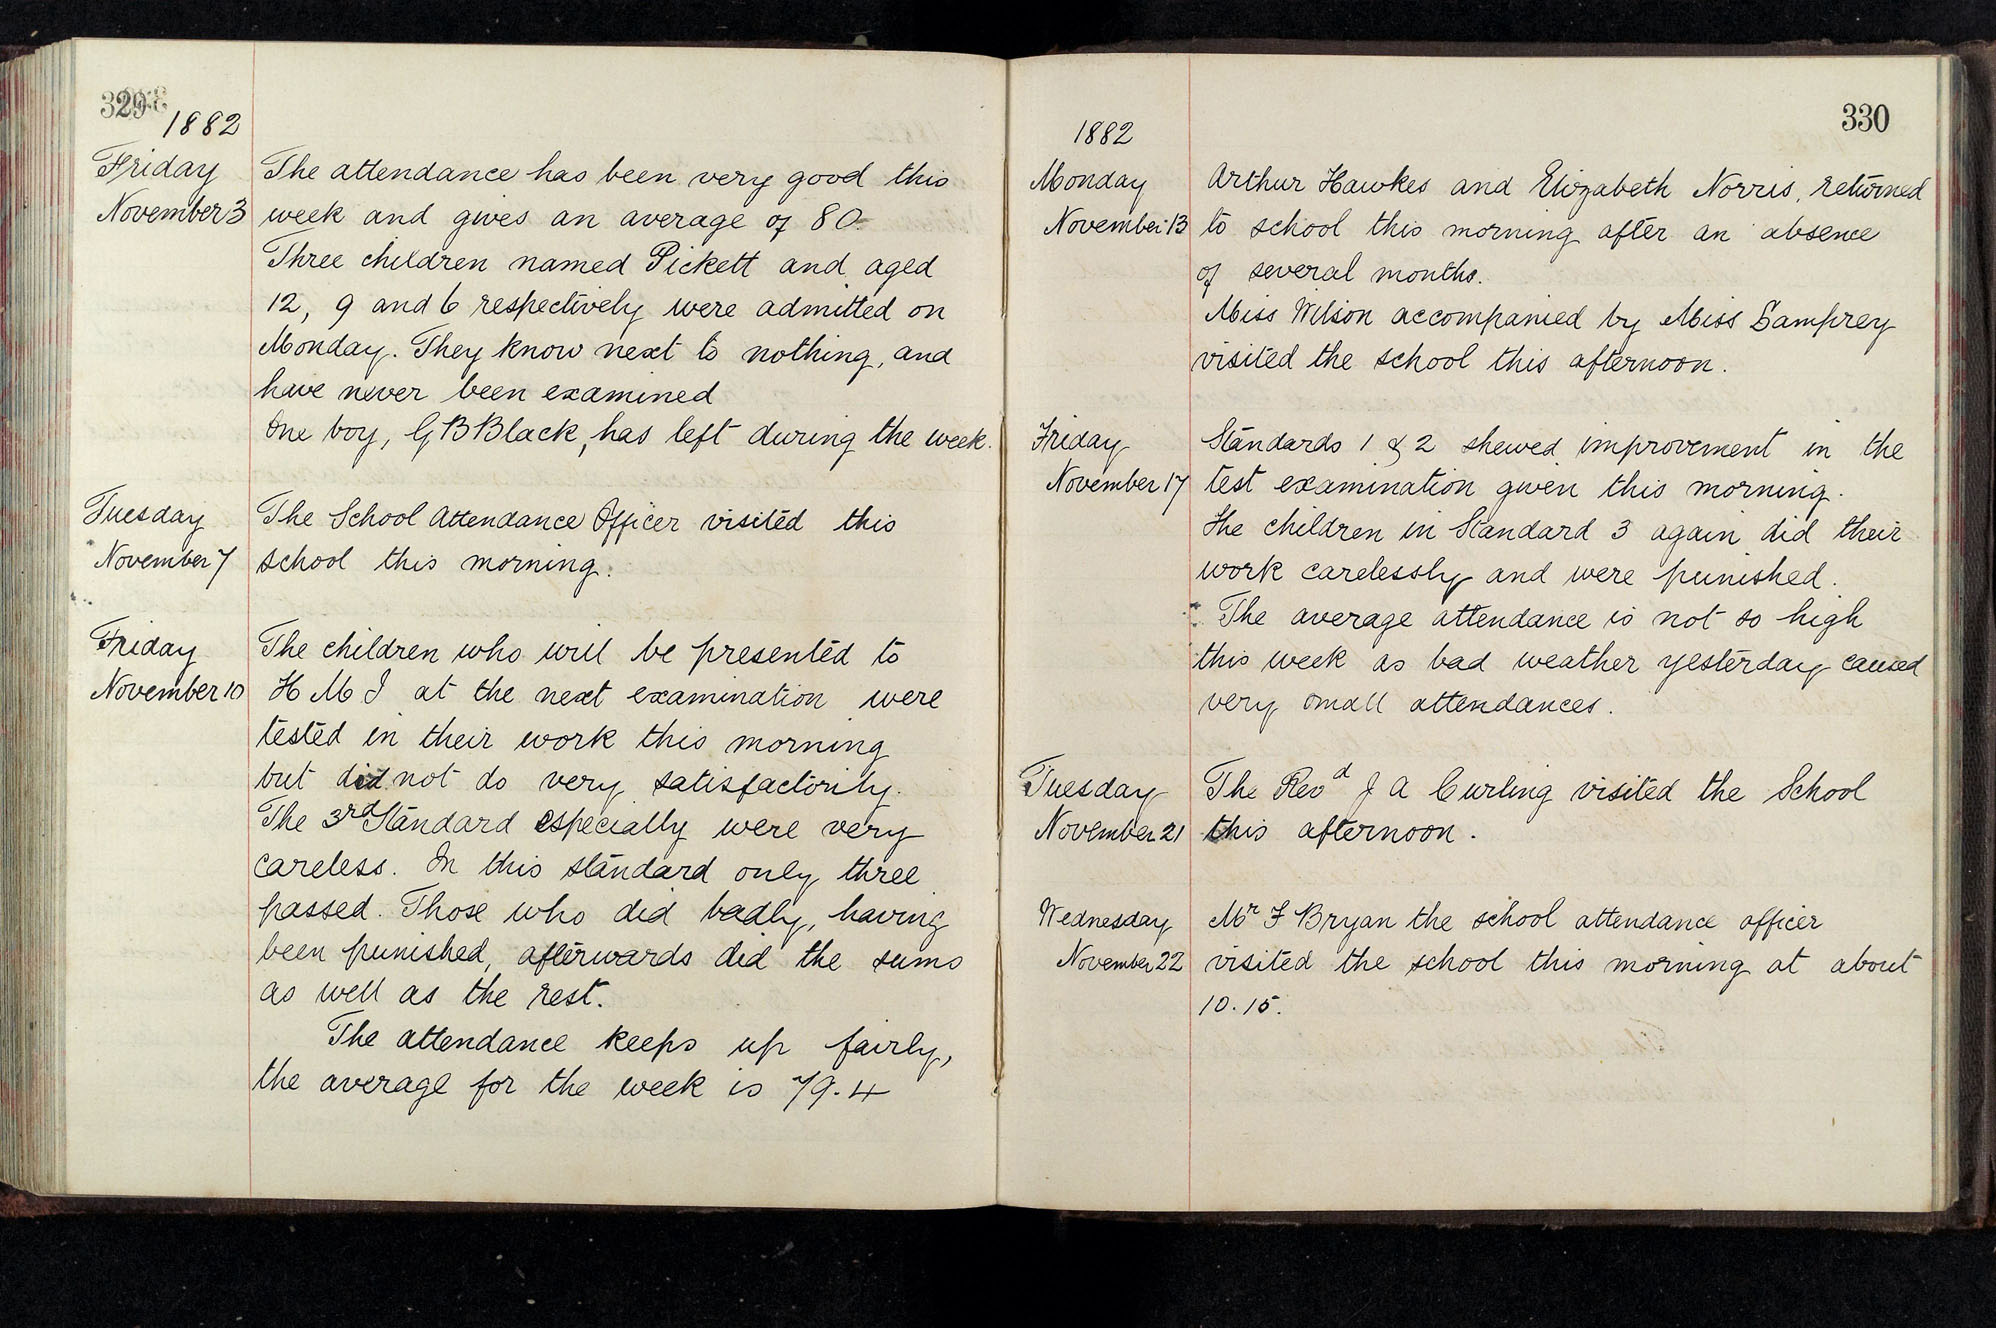 329
1882
Friday
November 3
The attendance has been very good this
week and gives an average of 80.
Three children named Pickett and aged
12, 9 and 6 respectively were admitted on
Monday. They know next to nothing, and
have never been examined
One boy, G B Black, has left during the week.
Tuesday
November 7
The School Attendance Officer visited this
school this morning.
Friday
November 10
The children who will be presented to
H M I at the next examination were
tested in their work this morning
but did not do very satisfactorily.
The 3rd Standard especially were very
careless. In this standard only three
passed. Those who did badly, having
been punished, afterwards did the sums
as well as the rest.
The attendance keeps up fairly,
the average for the week is 79.4
330
1882
Monday
November 13
Arthur Hawkes and Elizabeth Norris, returned
to school this morning after an absence
of several months.
Miss Wilson accompanied by Miss Lamprey
visited the school this afternoon.
Friday
November 17
Standards 1 & 2 shewed improvement in the
test examination given this morning.
The children in Standard 3 again did their
work carelessly and were punished.
The average attendance is not so high
this week as bad weather yesterday caused
very small attendances.
Tuesday
November 21
The Revd J A Curling visited the School
this afternoon.
Wednesday
November 22
Mr F Bryan the school attendance officer
visited the school this morning at about
10.15.